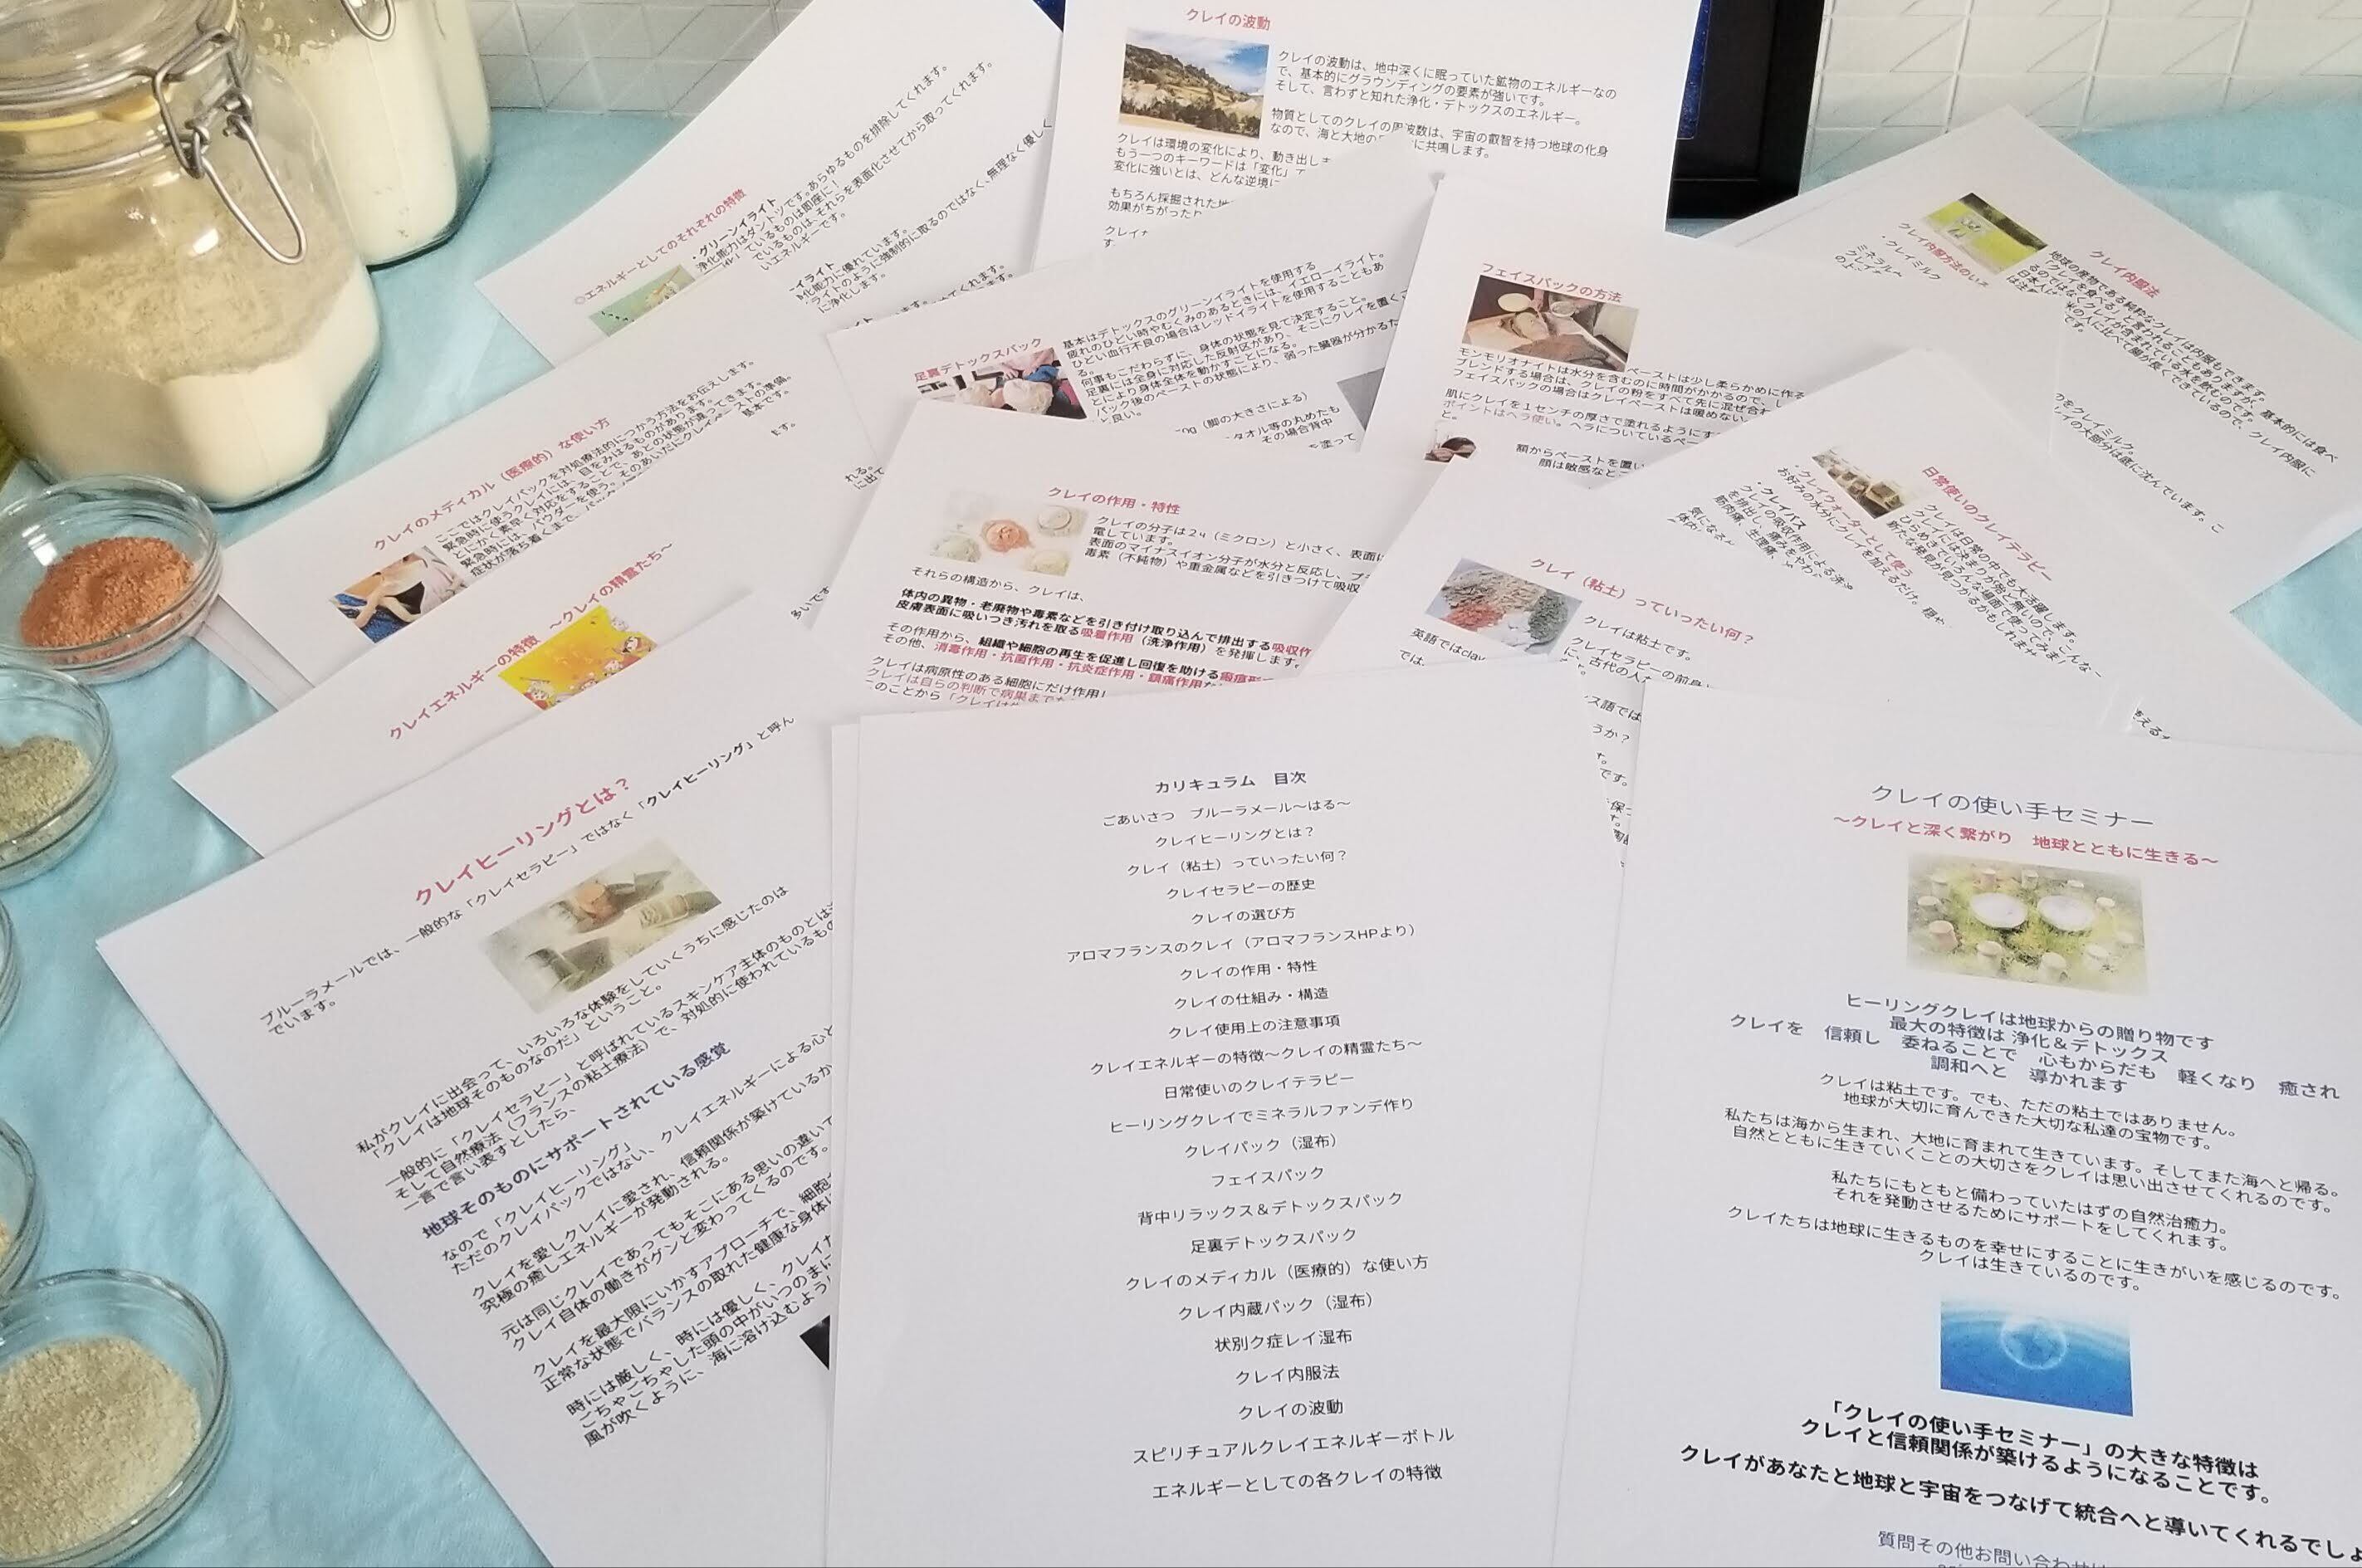 クレイの波動
クレイの波動は、地中深くに眠っていた鉱物のエネルギーなの
で、基本的にグラウンディングの要素が強いです。
そして、言わずと知れた浄化・デトックスのエネルギー。
物質としてのクレイの周波数は、宇宙の叡智を持つ地球の化身
なので、海と大地の
に共鳴します。
クレイは環境の変化により、動き出しま
もう一つのキーワードは「変化」
変化に強いとは、どんな逆境に
もちろん採掘された地
効果がちがった
クレイ
す
◎エネルギーとしてのそれぞれの特徴
・グリーンイライト
浄化能力はダントツです。あらゆるものを排除してくれます。
ているものは即座に！
でいるものは、それらを表面化させてから取ってくれます。
いエネルギーです。
イライト
化能力に優れています。
ライトのように強制的に取るのではなく、無理なく優しく
に浄化します。
足裏デトックスパック
基本はデトックスのグリーンイライトを使用する
疲れのひどい時やむくみのあるときには、イエローイライト。
ひどい血行不良の場合はレッドイライトを使用することもあ
る。
何事もこだわらずに、身体の状態を見て決定すること。
足裏には全身に対応した反射区があり、そこにクレイを置くこ
とにより身体全体を動かすことになる。
パック後のペーストの状態により、弱った臓器が分かるた
良い。
（脚の大きさによる）
タオル等の丸めたも
その場合背中
塗って
フェイスパックの方法
モンモリオナイトは水分を含むのに時間がかかるので、し
ペーストは少し柔らかめに作る
ブレンドする場合は、クレイの粉をすべて先に混ぜ合わ
フェイスパックの場合はクレイペーストは暖めない。
肌にクレイを１センチの厚さで塗れるようにす
ポイントはヘラ使い。ヘラについているペー
と。
額からペーストを置い
顔は敏感なと
クレイ内服法
地球の産物である純粋なクレイは内服もできます。
「クレイを食べる」と言われることもありますが、基本的には食べ
るのではなくクレイが含まれている水を飲むものです。
日本人は
米の人に比べて腸が長くできているので、クレイ内服に
は注
です。
クレイ内服方法のいろ
・クレイミルク
ミネラル
のよ
のをクレイミルク。
イの大部分は底に沈んでいます。こ
クレイのメディカル（医療的）な使い方
ここではクレイパックを対処療法的につかう方法をお伝えします。
緊急時に使うクレイには、目をみはるものがあります。
とにかく素早く対応をすることで、あとの状態が違ってきます。
緊急時には、パウダーを使う。そのあいだにクレイペーストの準備。
症状が落ち着くまで、パッ
基本です。
ます。
クレイの作用・特性
クレイの分子は２μ（ミクロン）と小さく、表面に
電しています。
表面のマイナスイオン分子が水分と反応し、プ
毒素（不純物）や重金属などを引きつけて吸収
それらの構造から、クレイは、
体内の異物・老廃物や毒素などを引き付け取り込んで排出する吸収作
皮膚表面に吸いつき汚れを取る吸着作用（洗浄作用）を発揮します。
その作用から、組織や細胞の再生を促進し回復を助ける瘢痕形
その他、消毒作用・抗菌作用・抗炎症作用・鎮痛作用な
クレイは病原性のある細胞にだけ作用し
クレイは自らの判断で病巣まで
このことから「クレイは
クレイ（粘土）っていったい何？
クレイは粘土です。
クレイセラピーの前身
に、古代の人た
英語ではclay
では、
ス語では
うか？
です。
日常使いのクレイテラピー
クレイは日常の中でも大活躍します。
クレイには決まりが殆ど無しので、こんな
ひらめきでいろんな場面で使ってみま
新たな発見が見つかるかもしれませ
・クレイウォーターとして使う
お好みの水分にクレイを加えるだけ。
・クレイバス
クレイの吸収作用による洗浄
を排出し、痛みをやわら
筋肉痛、生理痛、
気になる
体内
クレイエネルギーの特徴　～クレイの精霊たち～
クレイヒーリングとは？
ブルーラメールでは、一般的な「クレイセラピー」ではなく「クレイヒーリング」と呼ん
でいます。
私がクレイに出会って、いろいろな体験をしていくうちに感じたのは
「クレイは地球そのものなのだ」ということ。
一般的に「クレイセラピー」と呼ばれているスキンケア主体のものとは
そして自然療法（フランスの粘土療法）で、対処的に使われているもの
一言で言い表すとしたら、
地球そのものにサポートされている感覚
なので「クレイヒーリング」
ただのクレイパックではない、クレイエネルギーによる心と
クレイを愛しクレイに愛され、信頼関係が築けているか
究極の癒しエネルギーが発動される。
元は同じクレイであってもそこにある思いの違いで
クレイ自体の働きがグンと変わってくるのです。
クレイを最大限にいかすアプローチで、細胞
正常な状態でバランスの取れた健康な身体
時には厳しく、時には優しく、クレイが
ごちゃごちゃした頭の中がいつのまに
風が吹くように、海に溶け込むよう
カリキュラム　目次
ごあいさつ　ブルーラメール～はる～
クレイヒーリングとは？
クレイ（粘土）っていったい何？
クレイセラピーの歴史
クレイの選び方
アロマフランスのクレイ（アロマフランスHPより）
クレイの作用・特性
クレイの仕組み・構造
クレイ使用上の注意事項
クレイエネルギーの特徴～クレイの精霊たち～
日常使いのクレイテラピー
ヒーリングクレイでミネラルファンデ作り
クレイパック（湿布）
フェイスパック
背中リラックス＆デトックスパック
足裏デトックスパック
クレイのメディカル（医療的）な使い方
クレイ内蔵パック（湿布）
状別ク症レイ湿布
クレイ内服法
クレイの波動
スピリチュアルクレイエネルギーボトル
エネルギーとしての各クレイの特徴
クレイの使い手セミナー
～クレイと深く繋がり　地球とともに生きる～
ヒーリングクレイは地球からの贈り物です
最大の特徴は 浄化＆デトックス
クレイを　信頼し　委ねることで　心もからだも　軽くなり　癒され
調和へと　導かれます
クレイは粘土です。でも、ただの粘土ではありません。
地球が大切に育んできた大切な私達の宝物です。
私たちは海から生まれ、大地に育まれて生きています。そしてまた海へと帰る。
自然とともに生きていくことの大切さをクレイは思い出させてくれるのです。
私たちにもともと備わっていたはずの自然治癒力。
それを発動させるためにサポートをしてくれます。
クレイたちは地球に生きるものを幸せにすることに生きがいを感じるのです。
クレイは生きているのです。
「クレイの使い手セミナー」の大きな特徴は
クレイと信頼関係が築けるようになることです。
クレイがあなたと地球と宇宙をつなげて統合へと導いてくれるでしょ
質問その他お問い合わせは